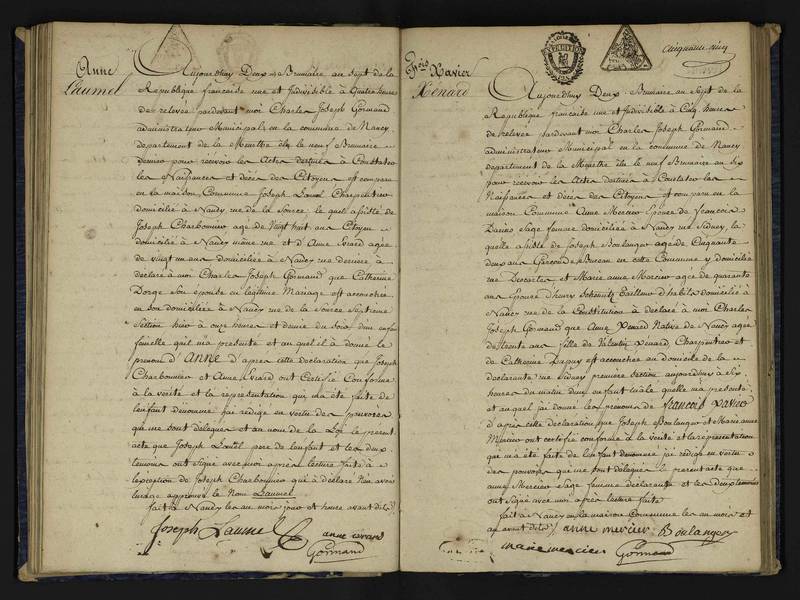 Anne
Laumel
Aujourd'huy Deux Brumaire an sept de la
République francaise une et Indivisible à Quatre heures
de relevée pardevant moi Charles Joseph Gormand
administrateur Municipal en la commune de Nancy,
departement de la Meurthe élu le neuf Brumaire
dernier pour recevoir les Actes destinés à Constater
les Naissances et décès des Citoyens est comparu
en la maison Commune Joseph Laumel Charpentier
domicilié à Nancy rue de la Source le quel assisté de
Joseph Charbonnier agé de Vingt huit ans Citoyen
domicilié à Nancy même rue et d'Anne Evrard agée
de vingt un ans domiciliée à Nancy rue derriere à
déclaré à moi Charles Joseph Gormand que Catherine
Dorge son épouse en légitime Mariage est accouchée
en son domicile à Nancy rue de la Source Septieme
Section hier à onze heures et demie du soir d'un enfant
femelle qu'il m'a présenté et au quel il à donné le
prenom d'ANNE d'apres cette déclaration que Joseph
Charbonnier et Anne Evrard ont Certifié Conforme
à la vérité et la représentation qui m'a été faite de
l'enfant dénommé j'ai rédigé en vertu des pouvoirs
qui me sont délégués et au nom de la Loi le présent
acte que Joseph Laumel pere de l'enfant et les deux
temoins ont signé avec moi apres lecture faite à
l'exception de Joseph Charbonnier qui à déclaré n'en avoir
l'usage approuvé le Nom Laumel
fait à Nancy les an mois jour et heure avant dits
Joseph Laumel
anne evrard
Gormand
Cinquante cinq
Fçois Xavier
Renard
Aujourd'huy Deux Brumaire an Sept de la
République francaise une et Indivisible à Cinq heures
de relevée pardevant moi Charles Joseph Gormand
administrateur Municipal en la commune de Nancy
departement de la Meurthe élu le neuf Brumaire an six
pour recevoir les Actes destinés à Constater les
Naissances et décès des Citoyens est comparu en la
maison Commune Anne Mercier Epouse de francois
Sage femme domiciliée à Nancy rue Sidney, la
quelle assistée de Joseph Boulanger agé de Cinquante
deux ans Garcon de Bureau en cette Commune y domicilié
rue Descartes et Marie anne Mercier agée de quarante
ans Epouse d'henry Schemitz tailleur d'habits domiciliée à
Nancy rue de la Constitution à déclaré à moi Charles
Joseph Gormand que Anne Renard Native de Nancy agée
de trente ans fille de Valentin Renard Charpentier et
de Catherine est accouchée au domicile de la
déclarante rue Sidney premiere section aujourd'huy à Six
heures du matin d'un enfant mâle quelle m'a présenté
et au quel j'ai donné les prenoms de françois Xavier
d'apres cette déclaration que Joseph Boulanger et Marie anne
Mercier ont certifié conforme à la vérité et la représentation
qui m'a été faite de l'enfant dénommé j'ai rédigé en vertu
des pouvoirs qui me sont délégués le présent acte que
anne Mercier Sage femme déclarante et les deux temoins
ont signé avec moi apres lecture faite
fait à Nancy en la maison Commune les an mois et
jour avant dits
anne mercier
Boulanger
marie mercier
Gormand